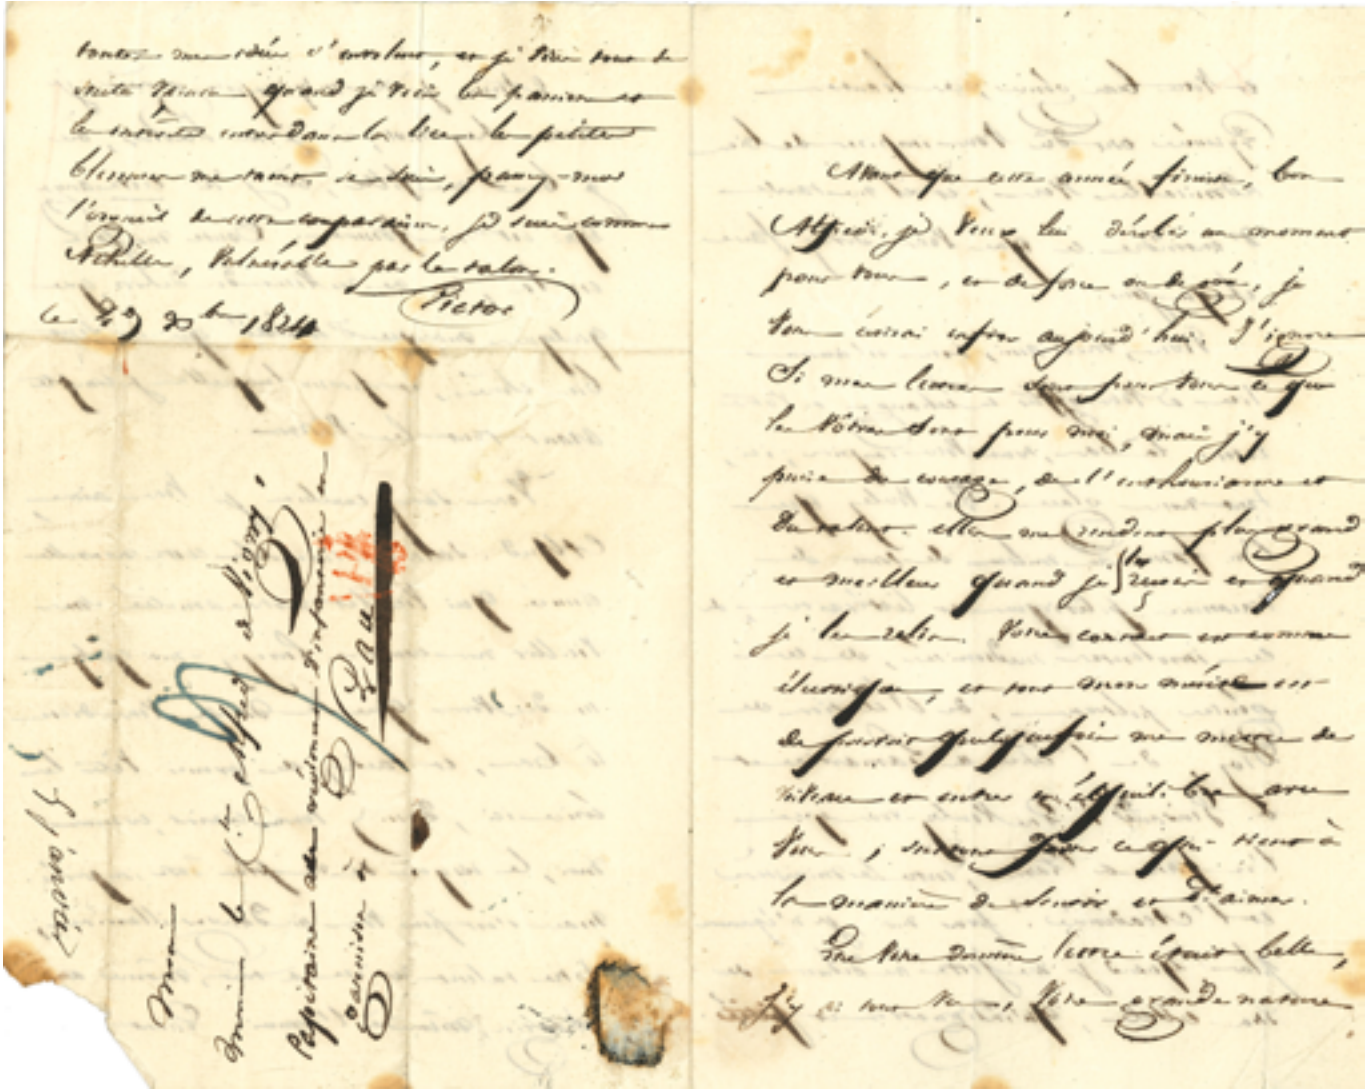 toutes mes idées s'envolent, et je suis tout de
suite vaincu quand je vois les passions et
les intérêts entrer dans la lice. les petites
blessures me tuent. je suis, passez-moi
l'orgueil de cette comparaison, je suis comme
Achille, vulnérable par le talon.
Victor
Ce 29 Xbre 1824
Monsieur
Monsieur le Cte Alfred de Vigny,
Capitaine régiment d'infanterie en
garnison à
Pau
Avant que cette année finisse, bon
Alfred, je veux lui dérober un moment
pour vous, et de force ou de gré, je
vous écrirai enfin aujourd'hui. J'ignore
si mes lettres sont pour vous ce que
les vôtres sont pour moi, mais j'y
puise du courage, de l'enthousiasme et
du talent. elles me rendent plus grand
et meilleur quand je les reçois et quand
je les relis. Votre contact est comme
électrique, et tout mon mérite est
de pouvoir quelquefois me mettre de
niveau et entrer en équilibre avec
vous ; surtout dans ce qui tient à
la manière de sentir et d'aimer.
Que votre dernière lettre était belle,
J'y ai tout vu, votre grande nature